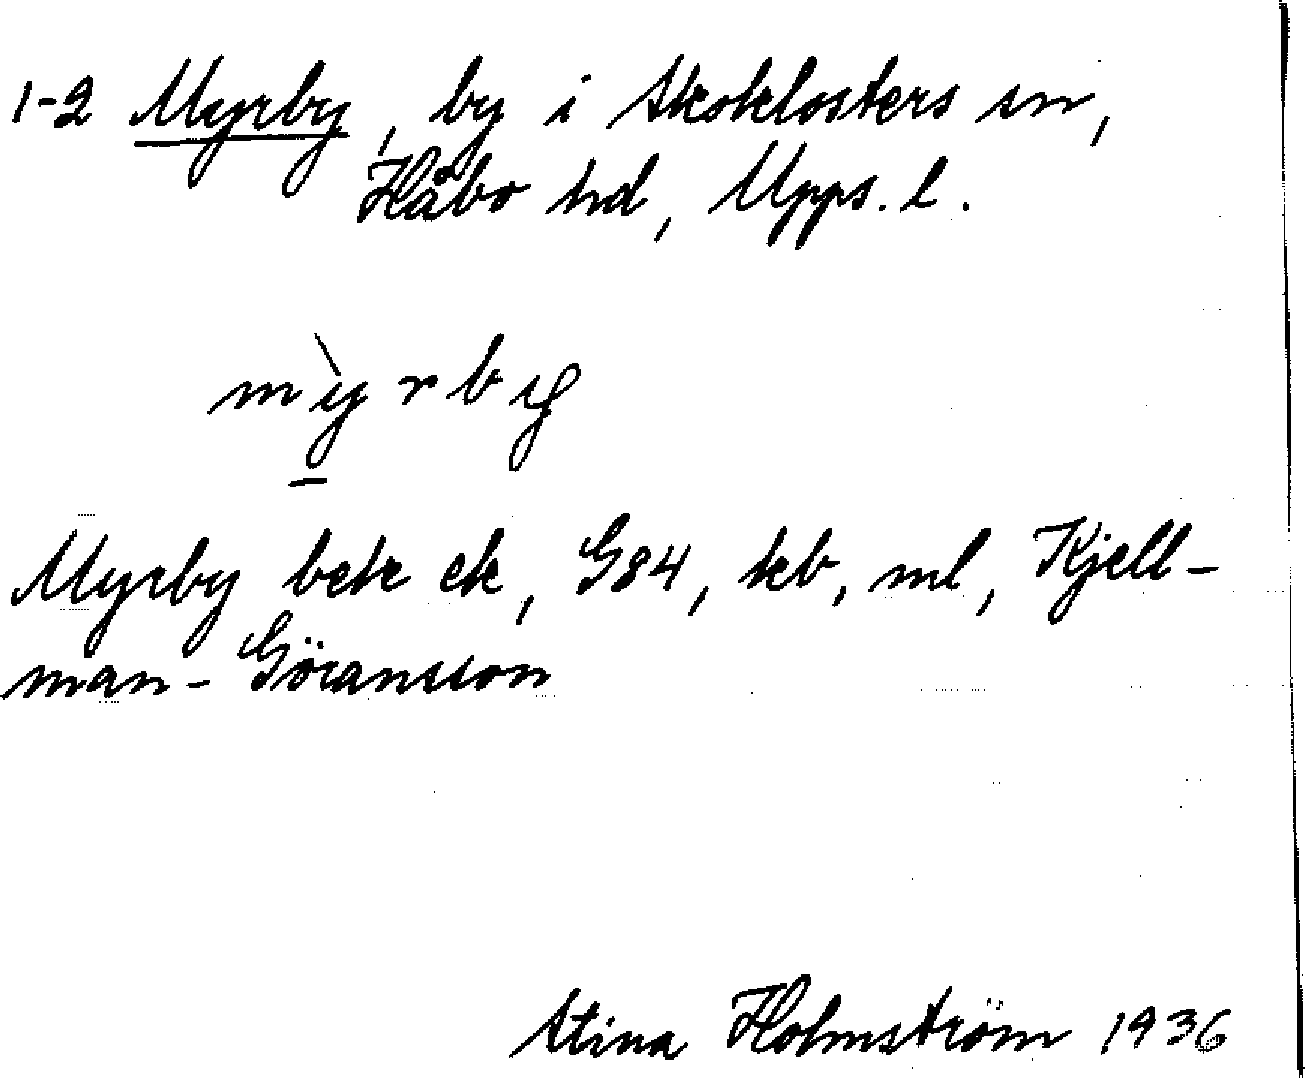 1-2 Myrby, by i Skoklosters sn,
Håbo hd, Upps. l.
mỳrby
Myrby bek ek, G84, kb, ml, Kjell-
man-Göransson
Stina Holmström 1936